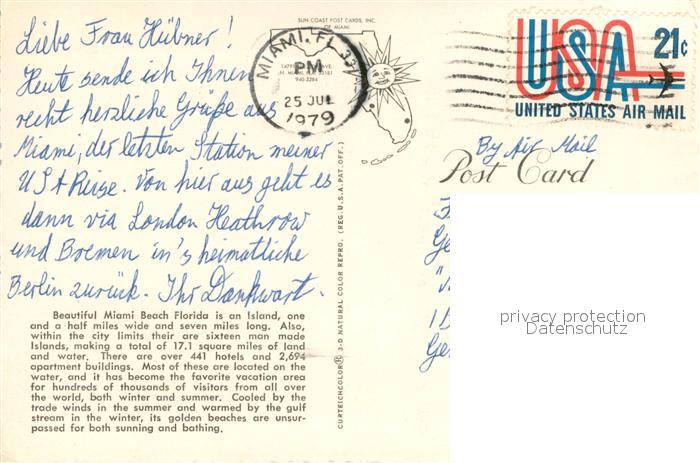 Liebe Frau Hübner!
Heute sende ich Ihnen
recht herzliche Grüße aus
Miami, der letzten Station meiner
USA Reise. Von hier aus geht es
dann via London Heathrow
und Bremen in's heimatliche
Berlin zurück. Ihr Dankwart.
Beautiful Miami Beach Florida is an Island, one
and a half miles wide and seven miles long. Also,
within the city limits their are sixteen man made
Islands, making a total of 17.1 square miles of land
and water. There are over 441 hotels and 2,694
apartment buildings. Most of these are located on the
water, and it has become the favorite vacation area
for hundreds of thousands of visitors from all over
the world, both winter and summer. Cooled by the
trade winds in the summer and warmed by the gulf
stream in the winter, its golden beaches are unsur-
passed for both sunning and bathing.
SUN COAST POST CARDS, INC.
OF MIAMI
N. MIAMI, FLA. 33181
940-3284
MIAMI, FL 33
PM
25 JUL
1979
CURTEICHCOLOR® 3-D NATURAL COLOR REPRO. (REG. U.S.A. PAT. OFF.)
USA 21¢
UNITED STATES AIR MAIL
By Air Mail
Post Card
privacy protection
Datenschutz